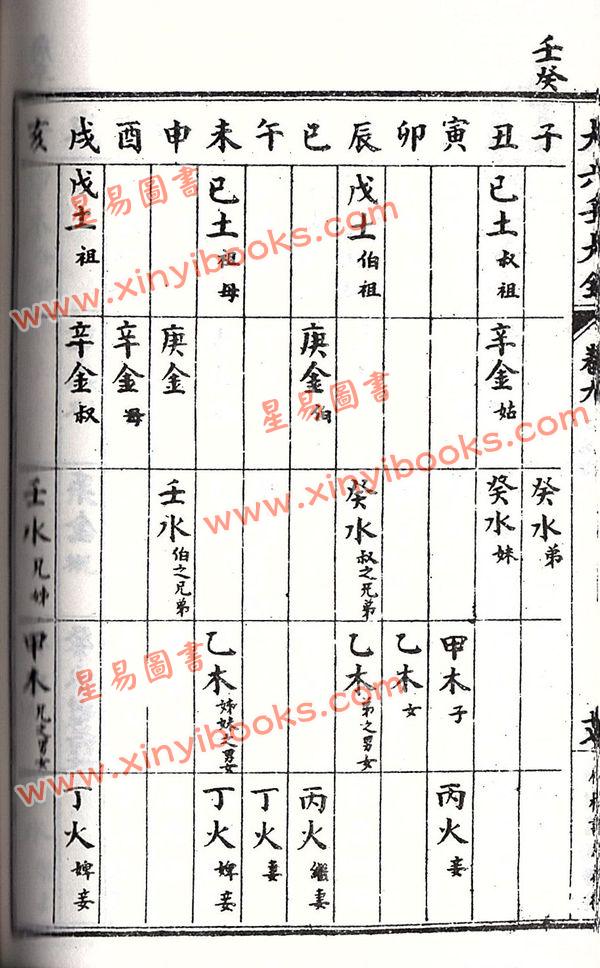 壬癸
大六壬大全 卷九
子 癸水弟
丑 己土叔祖 辛金姑 癸水妹
寅 甲木子 丙火妾
卯 乙木女
辰 戊土伯祖 癸水叔之兄弟 乙木弟之男女
巳 庚金伯 丙火繼妻
午 丁火妻
未 己土祖母 乙木姊妹之男女 丁火婢妾
申 庚金 壬水伯之兄弟
酉 辛金母
戌 戊土祖 辛金叔 丁火婢妾
亥 壬水兄姊 甲木兄之男女
星易圖書
www.xinyibooks.com
星易圖書
www.xinyibooks.com
星易圖書
www.xinyibooks.com